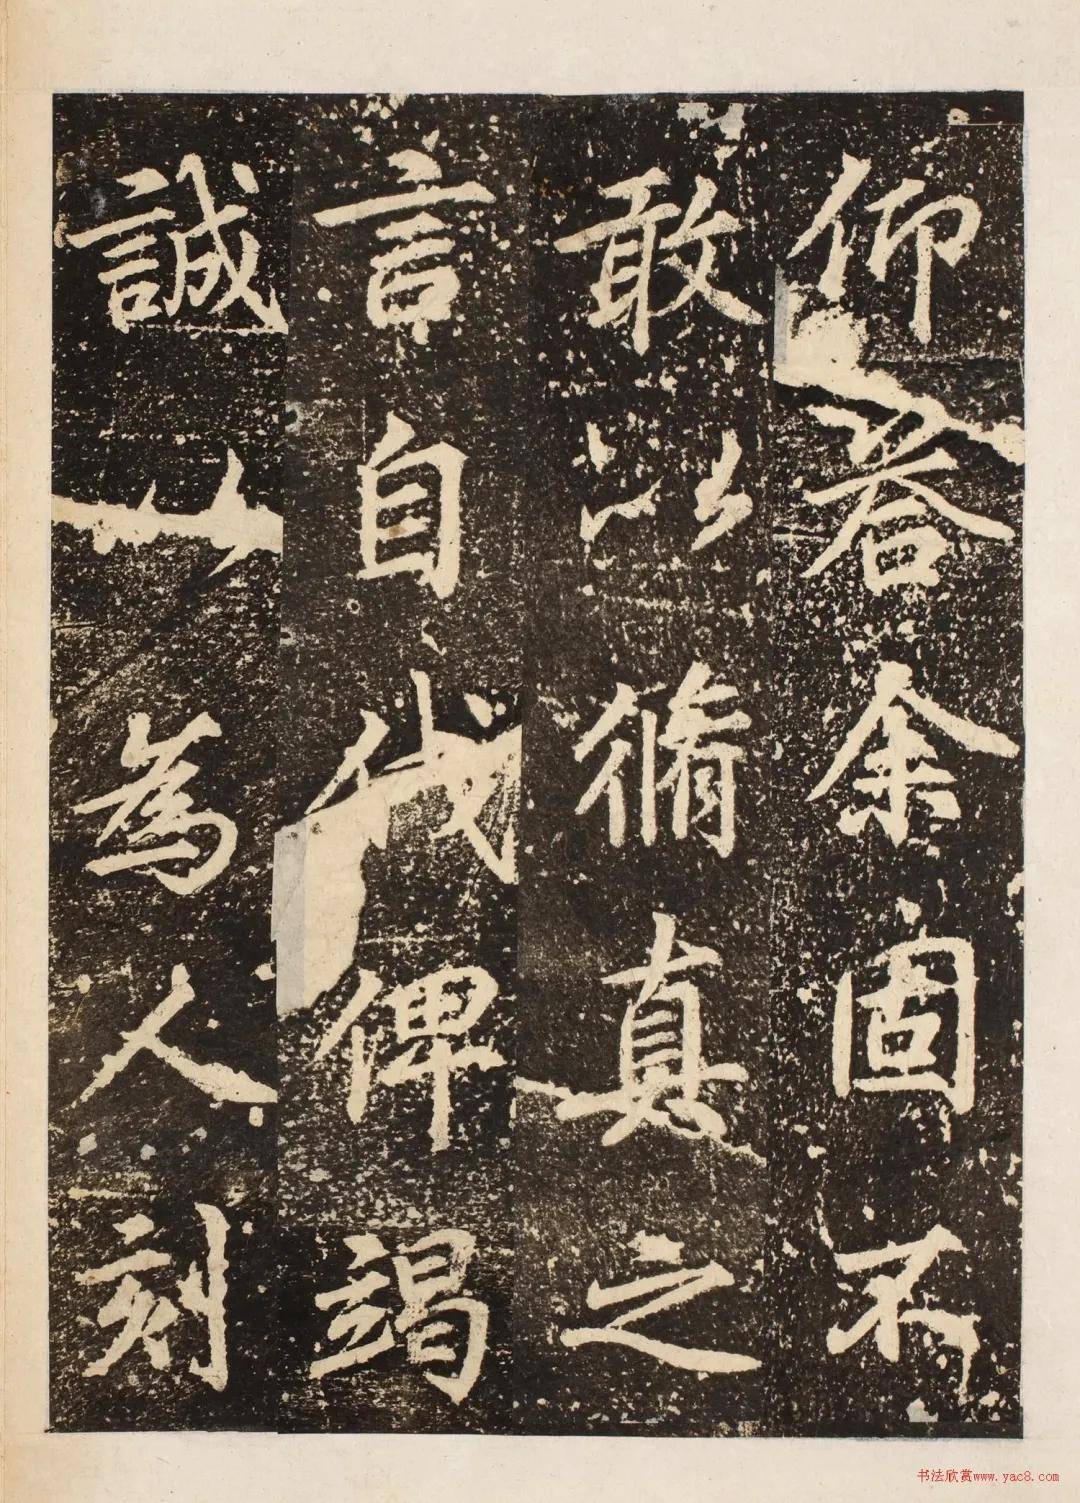 仰荅余固不
敢以脩真之
言自代俾竭
誠以為人刻
书法欣赏www.yac8.com